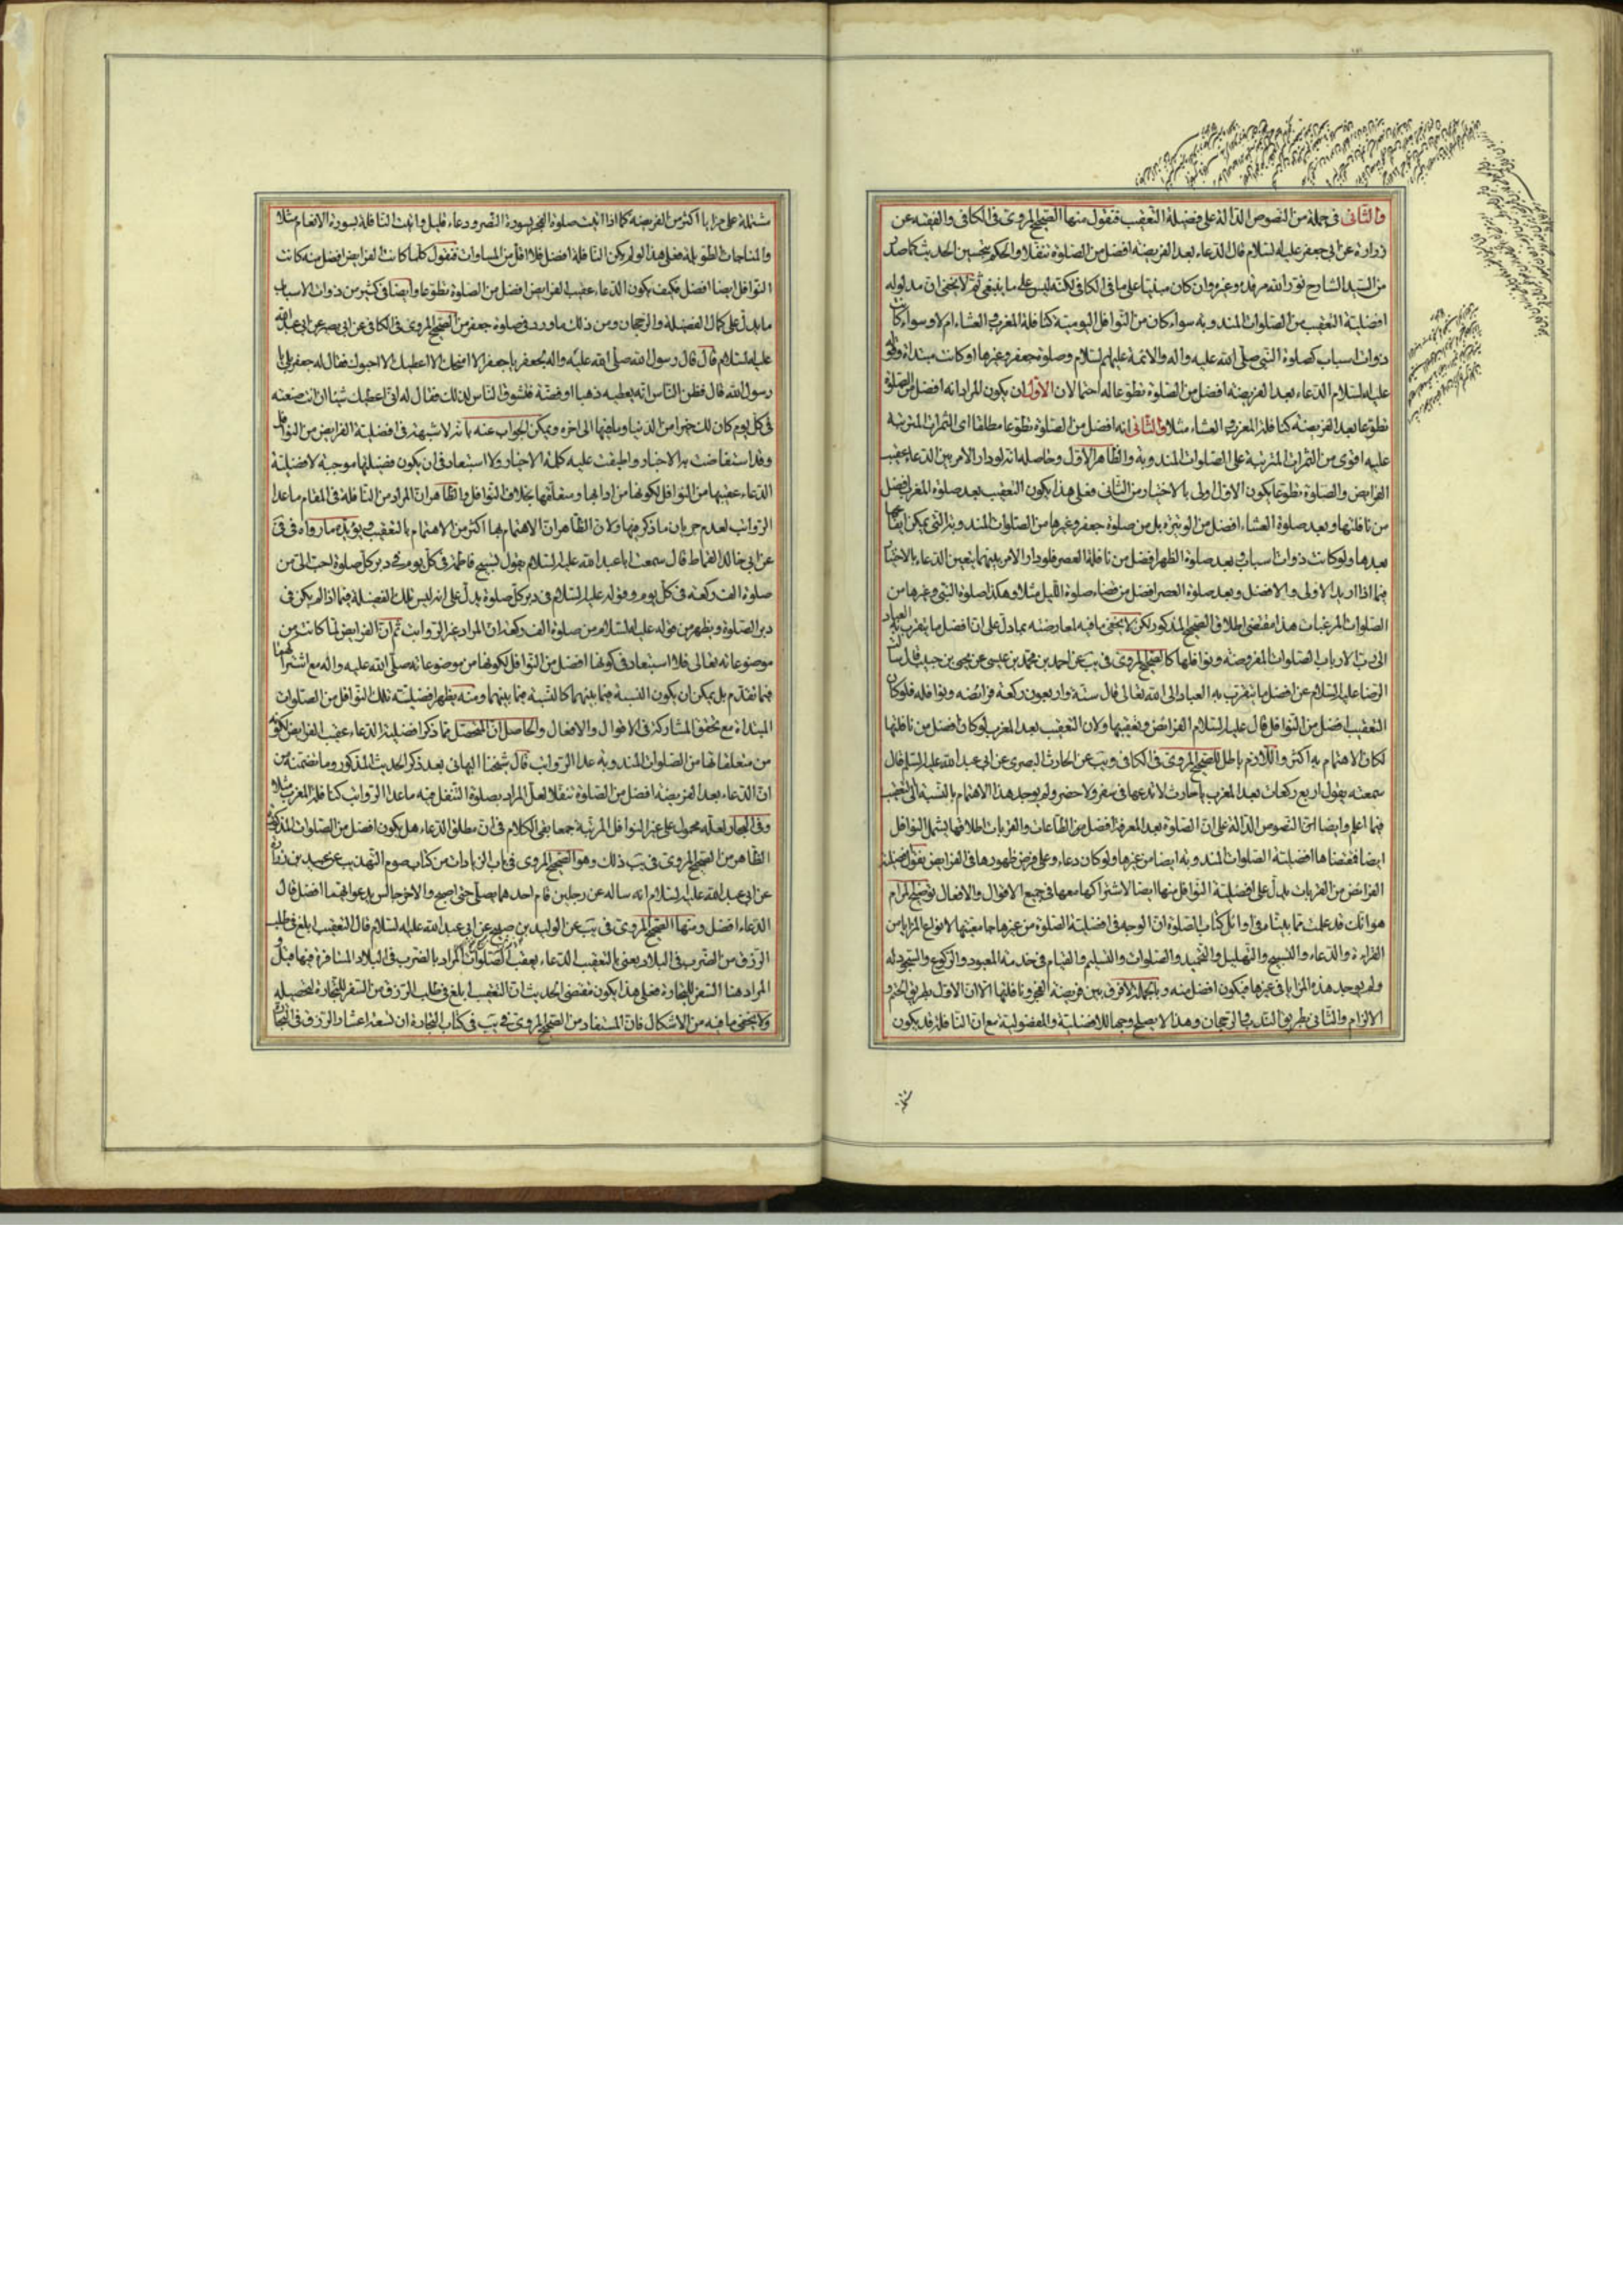 والثانى فى جملة من النصوص الدالة على فضيلة التعقيب فنقول منها الصحيح المروى فى الكافى والفقيه عن
زرارة عن ابى جعفر عليه السلام قال الدعاء بعد الفريضة افضل من الصلوة تنفلا والحكم بتحسين الحديث كما صدر
من السيد الشارح نور الله مرقده وغيره وان كان مبنيا على ما فى الكافى لكنه ليس على ما ينبغى ثم لا يخفى ان مدلوله
افضلية التعقيب من الصلوات المندوبة سواء كان من النوافل اليومية كنافلة المغرب والعشاء ام لا وسواء كانت
ذوات اسباب كصلوة النبى صلى الله عليه واله والائمة عليهم السلام وصلوة جعفر وغيرها او كانت مبتداة وقوله
عليه السلام الدعاء بعد الفريضة افضل من الصلوة تطوعا له احتمالان الاول ان يكون المراد انه افضل من الصلوة
تطوعا بعد الفريضة كنافلة المغرب والعشاء مثلا والثانى انه افضل من الصلوة تطوعا مطلقا اى الثمرات المترتبة
عليه اقوى من الثمرات المترتبة على الصلوات المندوبة والظاهر الاول وحاصله انه لو دار الامر بين الدعاء عقيب
الفرايض والصلوة تطوعا يكون الاول اولى بالاختيار من الثانى فعلى هذا يكون التعقيب بعد صلوة المغرب افضل
من نافلتها وبعد صلوة العشاء افضل من الوتيرة بل من صلوة جعفر وغيرها من الصلوات المندوبة التى يمكن ايقاعها
بعدها ولو كانت ذوات اسباب وبعد صلوة الظهر افضل من نافلة العصر فلو دار الامر بينهما يتعين الدعاء بالاختيار
فيما اذا اريد الاولى والافضل وبعد صلوة العصر افضل من قضاء صلوة الليل مثلا وهكذا صلوة النبى وغيرها من
الصلوات المرغبات هذا مقتضى اطلاق الصحيح المذكور لكن لا يخفى ما فيه لمعارضته بما دل على ان افضل ما يتقرب به العباد
الى رب الارباب الصلوات المفروضة ونوافلها كالصحيح المروى فى يب عن احمد بن محمد بن عيسى عن يحيى بن حبيب قال سالت
الرضا عليه السلام عن افضل ما يتقرب به العباد الى الله تعالى قال ستة واربعون ركعة فرائضه ونوافله فلو كان
التعقيب افضل من النوافل قال عليه السلام الفرائض وتعقيبها ولان التعقيب بعد المغرب لو كان افضل من نافلتها
لكان الاهتمام به اكثر واللازم باطل للصحيح المروى فى الكافى ويب عن الحارث البصرى عن ابى عبد الله عليه السلم قال
سمعته يقول اربع ركعات بعد المغرب يا حارث لا تدعها فى سفر ولا حضر ولم يوجد هذا الاهتمام بالنسبة الى التعقيب
فيما اعلم وايضا ان النصوص الدالة على ان الصلوة بعد المعرفة افضل من الطاعات والقربات اطلاقها يشمل النوافل
ايضا فمقتضاها افضلية الصلوات المندوبة ايضا من غيرها ولو كان دعاء وعلى فرض ظهورها فى الفرايض نقول افضلية
الفرائض من القربات يدل على افضلية النوافل منها ايضا لاشتراكها معها فى جميع الاقوال والافعال توضيح المرام
هو انك قد علمت مما بيناه فى اوائل كتاب الصلوة ان الوجه فى افضلية الصلوة من غيرها جامعيتها لانواع المزايا من
القراءة والدعاء والتسبيح والتهليل والتحميد والصلوات والتسليم والقيام فى خدمة المعبود والركوع والسجود له
ولم يوجد هذه المزايا فى غيرها فيكون افضل منه وبالجملة لا فرق بين فريضة الفجر ونافلتها الا ان الاول بطريق الحتم و
الالزام والثانى بطريق الندب والرجحان وهذا لا يصلح وجها للافضلية والمفضولية مع ان النافلة قد يكون
مشتملة
مشتملة على مزايا اكثر من الفريضة كما اذا اتيت صلوة الفجر بسورة النصر ودعاء قليل واتيت النافلة بسورة الانعام مثلا
والمناجات الطويلة فعلى هذا لو لم يكن النافلة افضل فلا اقل من المساوات فنقول كلما كانت الفرايض افضل منه كانت
النوافل ايضا افضل فكيف يكون الدعاء عقيب الفرايض افضل من الصلوة تطوعا وايضا فى كثير من ذوات الاسباب
ما يدل على كمال الفضيلة والرجحان ومن ذلك ما ورد فى صلوة جعفر من الصحيح المروى فى الكافى عن ابى بصير عن ابى عبد الله
عليه السلام قال قال رسول الله صلى الله عليه واله لجعفر يا جعفر الا امنحك الا اعطيك الا احبوك فقال له جعفر بلى يا
رسول الله قال فظن الناس انه يعطيه ذهبا او فضة فتشوق الناس لذلك فقال له انى اعطيك شيئا ان انت صنعته
فى كل يوم كان لك خيرا من الدنيا وما فيها الى اخره ويمكن الجواب عنه بانه لا شبهة فى افضلية الفرايض من النوافل
وقد استفاضت به الاخبار واطبقت عليه كلمة الاخيار ولا استبعاد فى ان يكون فضيلتها موجبة لافضلية
الدعاء عقيبها من النوافل لكونها من ادابها ومتعلقها بخلاف النوافل والظاهر ان المراد من النافلة فى المقام ما عدا
الرواتب لعدم جريان ما ذكر فيها ولان الظاهر ان الاهتمام بها اكثر من الاهتمام بالتعقيب ويؤيده ما رواه فى فى
عن ابى خالد القماط قال سمعت ابا عبد الله عليه السلام يقول تسبيح فاطمة فى كل يوم فى دبر كل صلوة احب الى من
صلوة الف ركعة فى كل يوم وقوله عليه السلام فى دبر كل صلوة يدل على انه ليس تلك الفضيلة فيما اذا لم يكن فى
دبر الصلوة ويظهر من قوله عليه السلام من صلوة الف ركعة ان المراد غير الرواتب ثم ان الفرايض لما كانت من
موضوعاته تعالى فلا استبعاد فى كونها افضل من النوافل لكونها من موضوعاته صلى الله عليه واله مع اشتراكهما
فيما تقدم بل يمكن ان يكون النسبة فيما بينهما كالنسبة فيما بينهما ومنه يظهر افضلية تلك النوافل من الصلوات
المبتداة مع تحقق المشاركة فى الاقوال والافعال والحاصل ان المحصل مما ذكر افضلية الدعاء عقيب الفرايض لكونه
من متعلقاتها من الصلوات المندوبة عدا الرواتب قال شيخنا البهائى بعد ذكر الحديث المذكور وما تضمنه من
ان الدعاء بعد الفريضة افضل من الصلوة تنفلا لعل المراد بصلوة التنفل فيه ما عدا الرواتب كنافلة المغرب مثلا
وفى البحار لعله محمول على غير النوافل المرتبة جمعا بقى الكلام فى ان مطلق الدعاء هل يكون افضل من الصلوات المذكورة
الظاهر من الصحيح المروى فى يب ذلك وهو الصحيح المروى فى باب الزيادات من كتاب صوم التهذيب عن عبيد بن زرارة
عن ابى عبد الله عليه السلام انه ساله عن رجلين قام احدهما يصلى حتى اصبح والاخر جالس يدعو ايهما افضل قال
الدعاء افضل ومنها الصحيح المروى فى يب عن الوليد بن صبيح عن ابى عبد الله عليه السلام قال التعقيب ابلغ فى طلب
الرزق من الضرب فى البلاد يعنى بالتعقيب الدعاء بعقب الصلوات المراد بالضرب فى البلاد المسافرة فيها قيل
المراد هنا السفر للتجارة فعلى هذا يكون مقتضى الحديث ان التعقيب ابلغ فى طلب الرزق من السفر للتجارة لتحصيله
ولا يخفى ما فيه من الاشكال فان المستفاد من الصحيح المروى فى يب فى كتاب التجارة ان تسعة اعشار الرزق فى التجارة